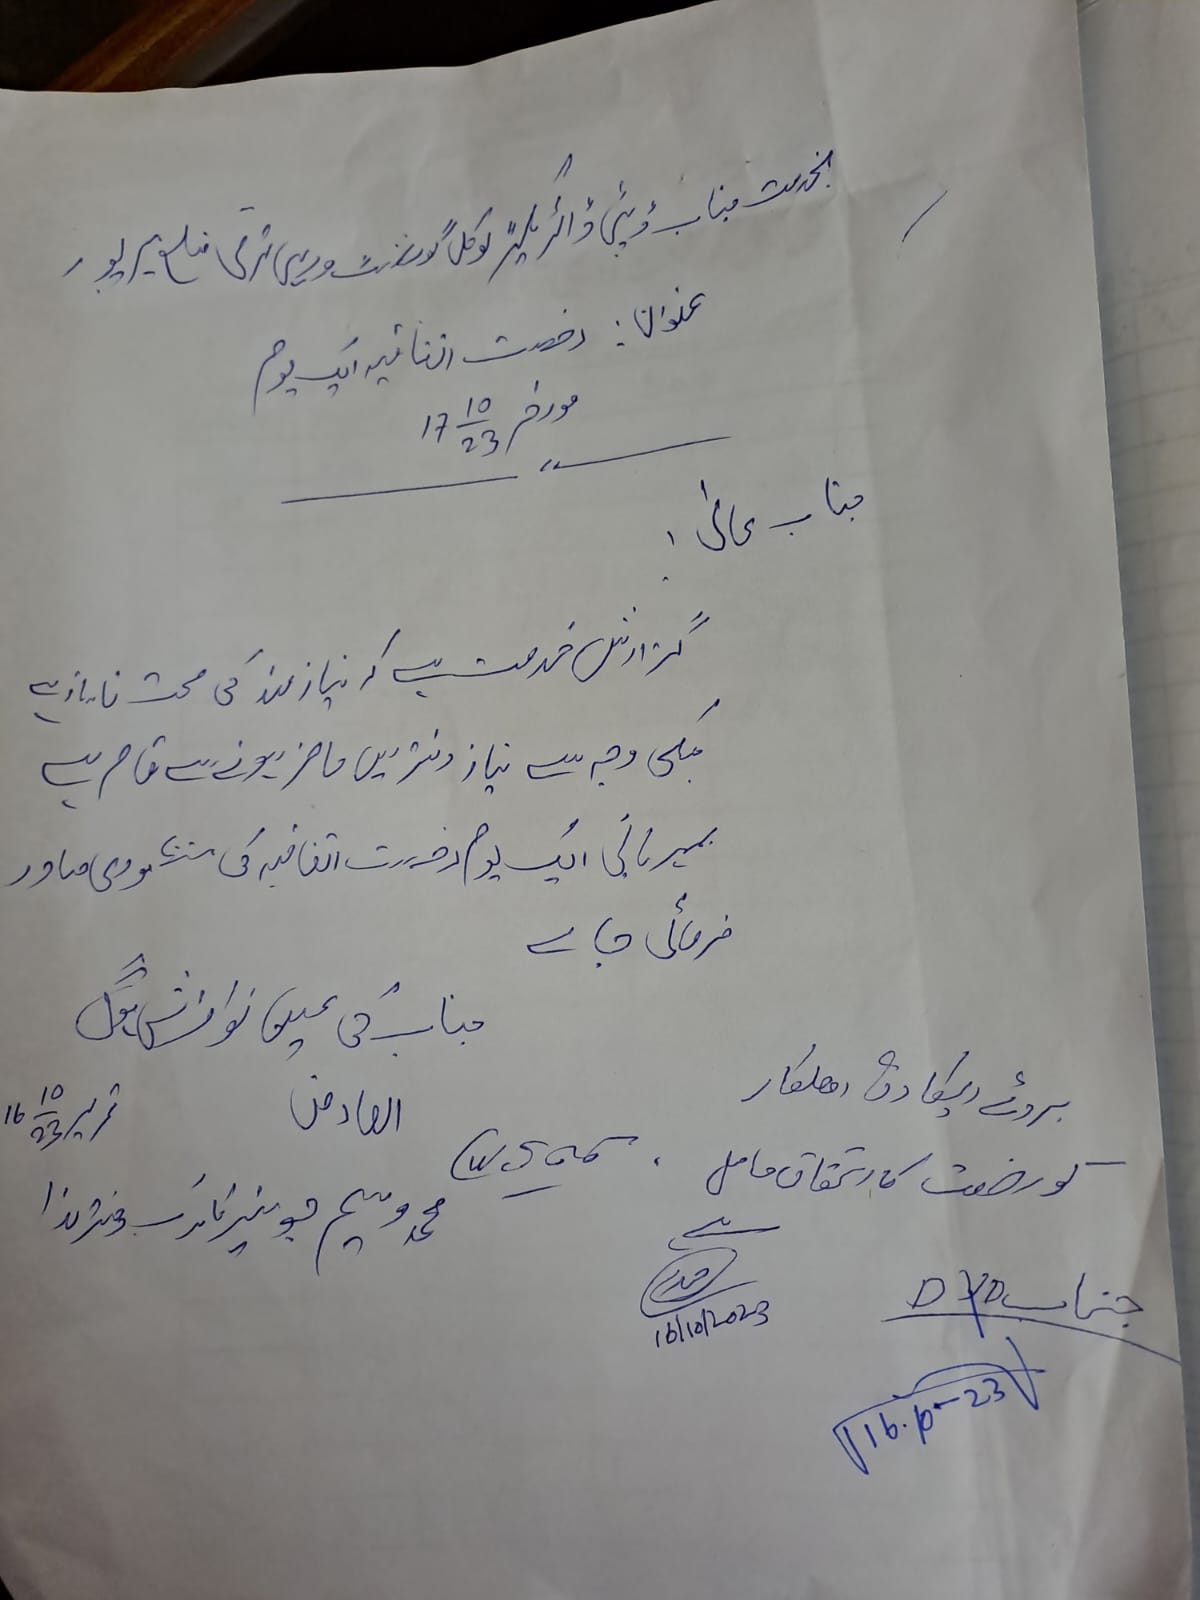 بخدمت جناب ڈپٹی ڈائریکٹر لوکل گورنمنٹ و دیہی ترقی ضلع میرپور
عنوان: رخصت اتفاقیہ ایک یوم
مورخہ 17 10/23
جناب عالی!
گزارش خدمت ہے کہ نیازمند کی صحت ناساز ہے
جسکی وجہ سے نیاز دفتر میں حاضر ہونے سے قاصر ہے
بمہربانی ایک یوم رخصت اتفاقیہ کی منظوری صادر
فرمائی جائے
جناب کی عین نوازش ہوگی
العارض
تحریر 16 10/23
محمد وسیم جونیئر کلرک دفتر ہذا
بروئے ریکارڈ اہلکار
کو رخصت کا استحقاق حاصل
ہے
16/10/2023
جناب DD
16.10-23